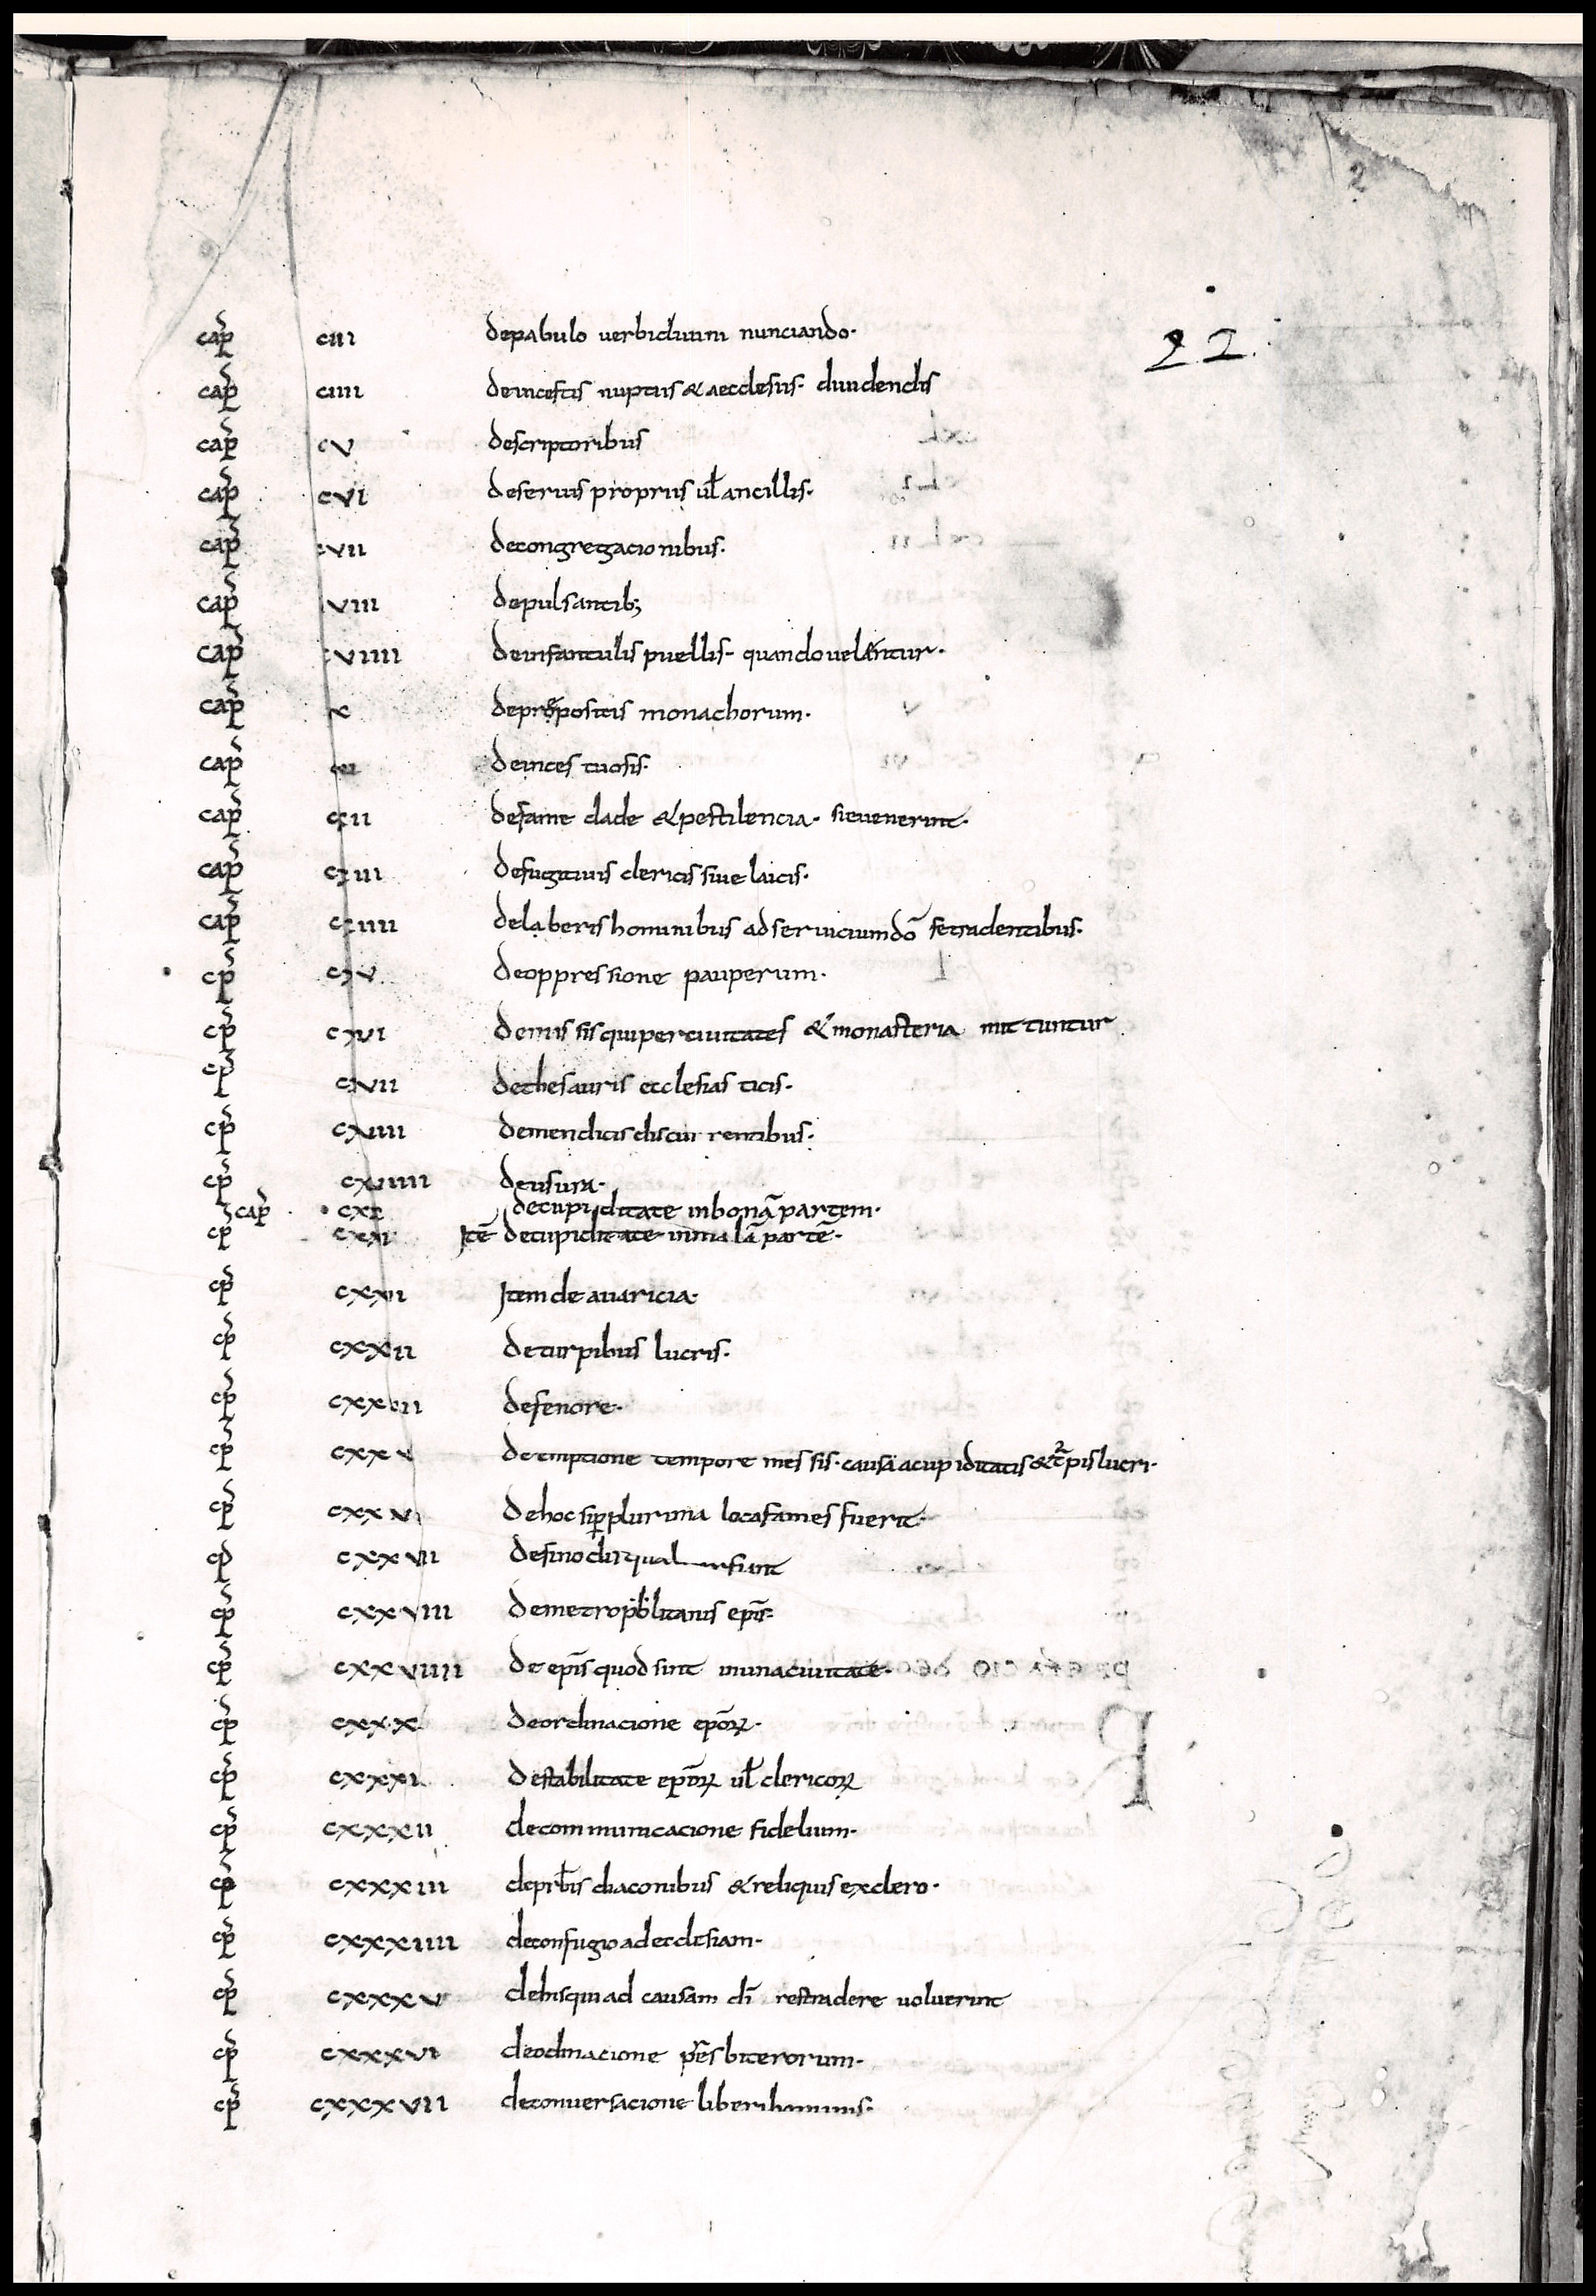 2
22.
cap̄ ciii depabulo verbidiuini nunciando·
cap̄ ciiii deincestis nuptiis & aecclesiis· diuidendis
cap̄ cv descriptoribus
cap̄ cvi deseruis propriis ul̄ ancillis·
cap̄ cvii decongregacionibus·
cap̄ viii depulsantib;
cap̄ cviiii deinfantulis puellis· quando uelentur·
cap̄ x depropositis monachorum·
cap̄ deincestuosis·
cap̄ cxii defame clade & pestilencia· sieuenerint·
cap̄ cxiii defugitiuis clericis siue laicis·
cap̄ cxiiii delaberis hominibus adseruiciumdō setradentibus·
cp̄ cxv deoppressione pauperum·
cp̄ cxvi demissis quiperciuitates & monasteria mittuntur
cp̄ cxvii dethesauris ecclesiasticis·
cp̄ cxviiii demendicis discurrentibus·
cp̄ cxviiii deusura·
cap̄ cxx decupiditate inbonā partem·
cp̄ cxxi Itē decupiditate inmalā partē·
cp̄ cxxii Item de auaricia·
cp̄ cxxiii deturpibus lucris·
cp̄ cxxiiii defenore·
cp̄ cxxv deemptione tempore messis· causa acupiditatis & t̄pis lucri·
cp̄ cxxvi dehoc sip̱ plurima loca fames fuerit·
cp̄ cxxvii desinodis fiunt
cp̄ cxxviii demetropolitanis ep̄is·
cp̄ cxxviiii de ep̄is quod sint inunaciuitate·
cp̄ cxxx deordinacione ep̄oꝝ·
cp̄ cxxxi destabilitate ep̄oꝝ ul̄ clericoꝝ
cp̄ cxxxii decommunicacione fidelium·
cp̄ cxxxiii deprb̄is diaconibus & reliquis exclero·
cp̄ cxxxiiii deconfugio adecclesiam·
cp̄ cxxxv dehisqui ad causam dī restradere uoluerint
cp̄ cxxxvi deodinacione p̄esbiterorum·
cp̄ cxxxvii deconuersacione liberihominis·